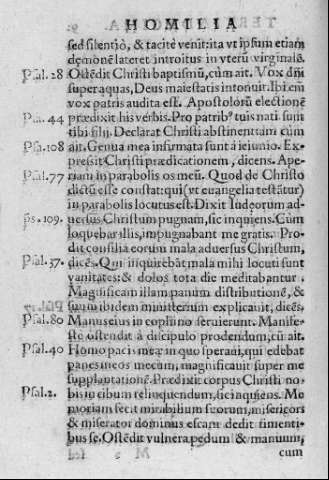 HOMILIA
sed silentiò, & tacitè venit: ita vt ipsum etiam
Psal. 28 dęmonē lateret introitus in vterū virginalē.
Ostēdit Christi baptismū, cùm ait. Vox dn̄i
super aquas, Deus maiestatis intonuit. Ibi .n.
vox patris audita est. Apostolorū electionē
Psa. 44 prædixit his verbis. Pro patribꝰ tuis nati sunt
tibi filij. Declarat Christi abstinentiam cùm
Psa. 108 ait. Genua mea infirmata sunt à ieiunio. Ex-
pressit Christi prædicationem, dicens. Ape-
Psal. 77 riam in parabolis os meū. Quod de Christo
dictū esse constat: qui (vt euangelia testātur)
in parabolis locutus est. Dixit Iudęorum ad-
ps. 109. uersus Christum pugnam, sic inquiens. Cùm
loquebar illis, impugnabant me gratis. Pro-
dit consilia eorum mala aduersus Christum,
Psal. 37. dicēs. Qui inquirebāt mala mihi locuti sunt
vanitates: & dolos tota die meditabantur.
Magnificam illam panum distributionē, &
sum ibidem ministerium explicauit, dicēs.
Psal. 80 Manus eius in cophino seruierunt. Manife-
stè ostendit à discipulo prodendum, cū ait.
Psal. 40 Homo pacis meæ in quo speraui, qui edebat
panes meos mecum, magnificauit super me
supplantationē. Prædixit corpus Christi no-
Psal. 2. bis in cibum relinquendum, sic inquiens. Me
moriam fecit mirabilium suorum, misericors
& miserator dominus escam dedit timenti-
bus se. Ostēdit vulnera pedum & manuum,
cum